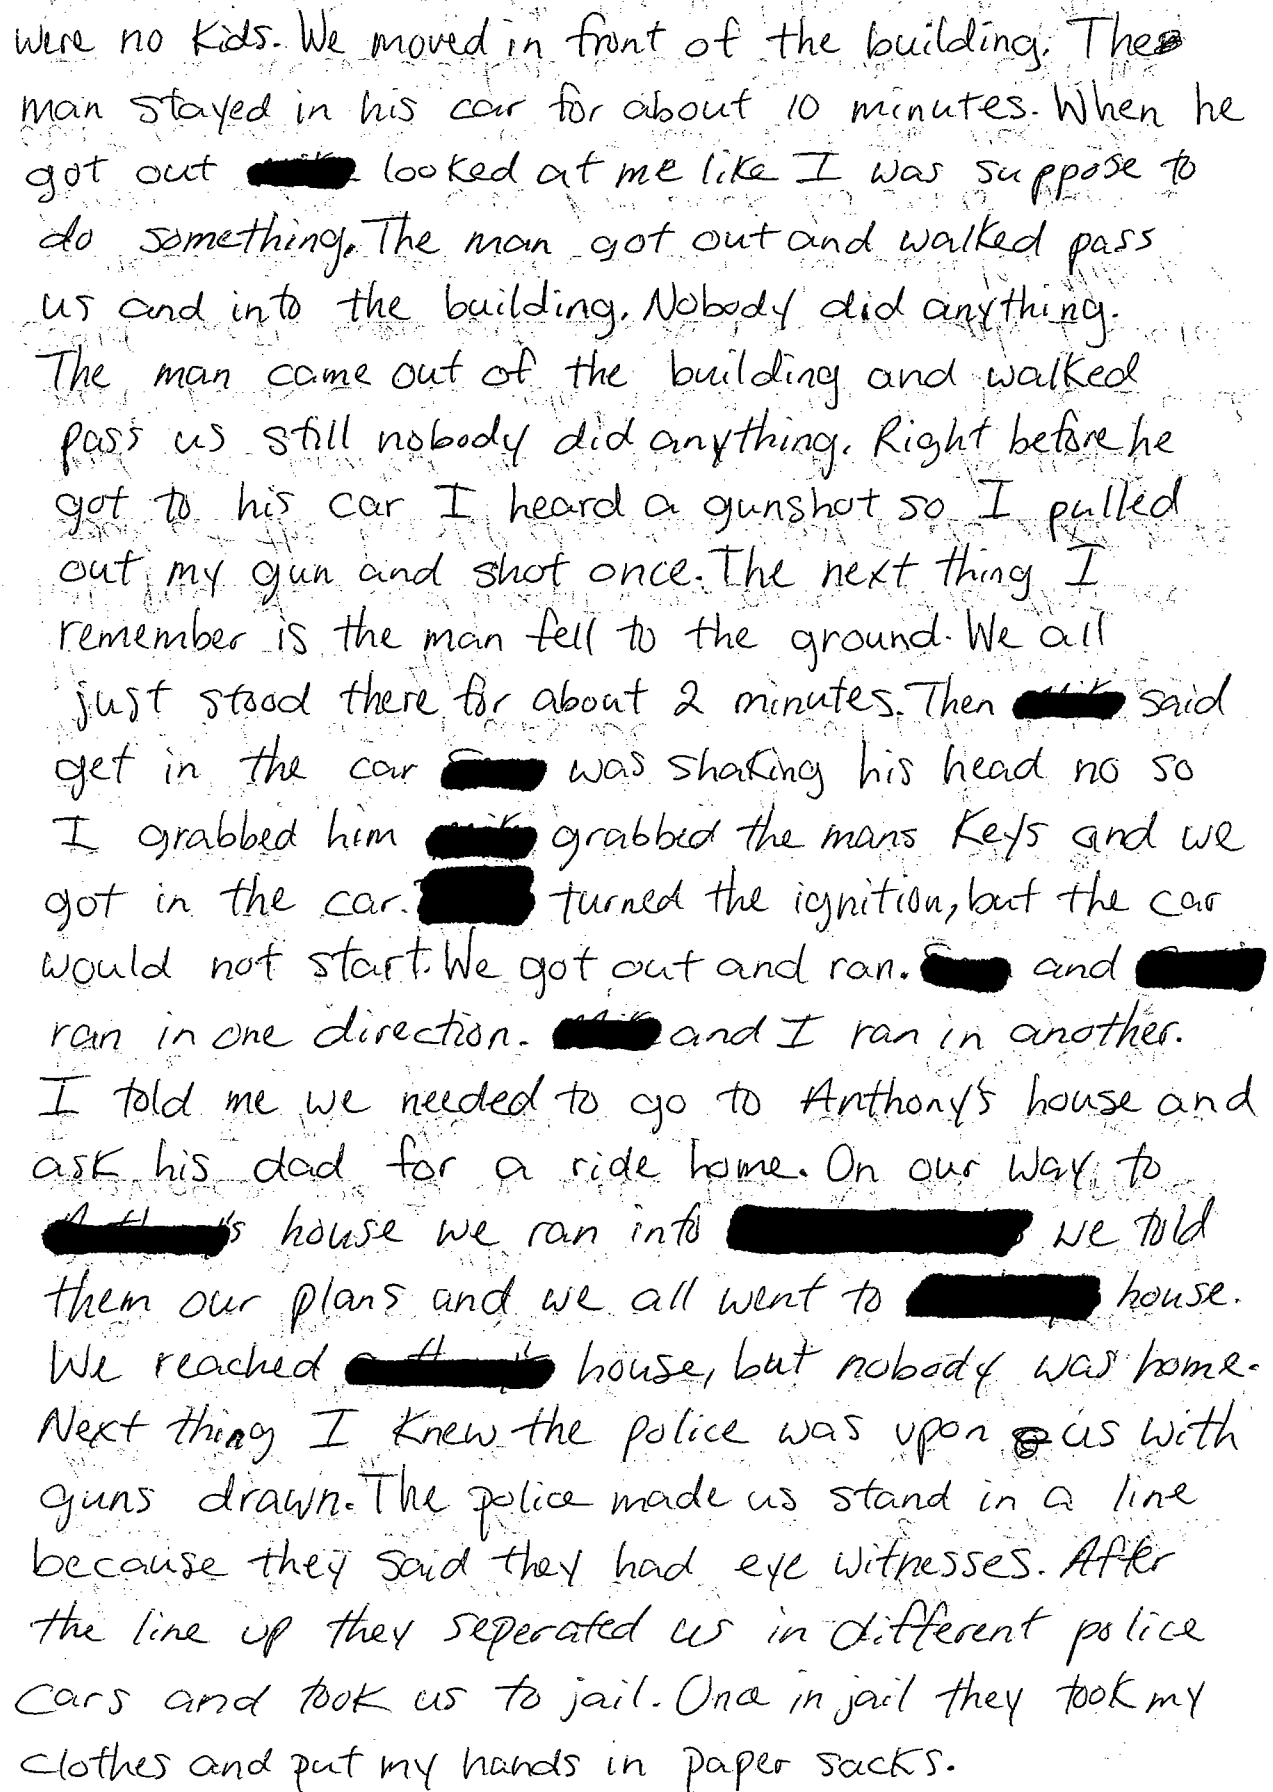 were no kids. We moved in front of the building. The
man stayed in his car for about 10 minutes. When he
got out looked at me like I was suppose to
do something. The man got out and walked pass
us and into the building. Nobody did anything.
The man came out of the building and walked
pass us still nobody did anything. Right before he
got to his car I heard a gunshot so I pulled
out my gun and shot once. The next thing I
remember is the man fell to the ground. We all
just stood there for about 2 minutes. Then said
get in the car was shaking his head no so
I grabbed him grabbed the mans keys and we
got in the car. turned the ignition, but the car
would not start. We got out and ran. and
ran in one direction. and I ran in another.
I told me we needed to go to Anthony's house and
ask his dad for a ride home. On our way to
's house we ran into we told
them our plans and we all went to house.
We reached house, but nobody was home.
Next thing I knew the police was upon us with
guns drawn. The police made us stand in a line
because they said they had eye witnesses. After
the line up they seperated us in different police
cars and took us to jail. Once in jail they took my
clothes and put my hands in paper sacks.